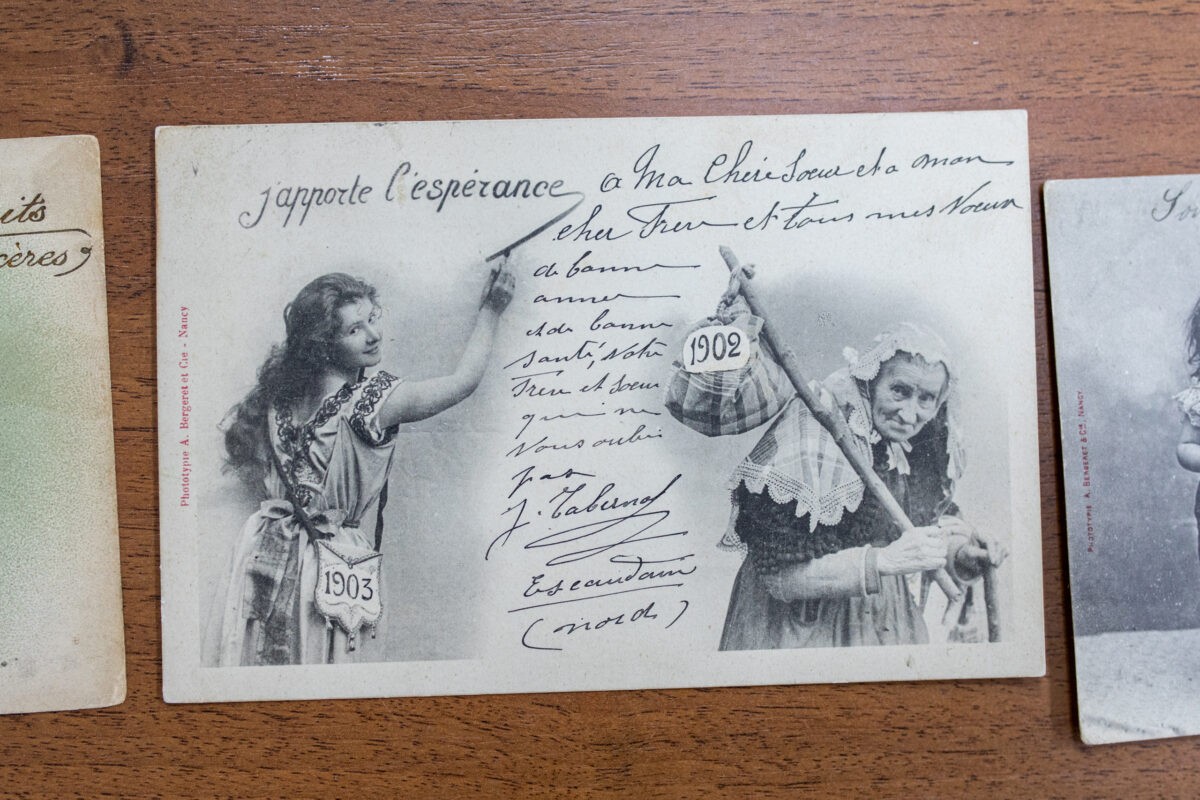 its
cères,
j'apporte l'espérance
a Ma Chère Soeur et a mon
cher Frere et tous mes Voeux
de bonne
anner
et de bonne
santé, Votre
Frère et Soeur
qui ne
Vous oublie
pas
J. Tabernol
Escaudain
(nord)
1902
1903
Phototypie A. Bergeret et Cie - Nancy
PHOTOTYPIE A. BERGERET & Cie, NANCY